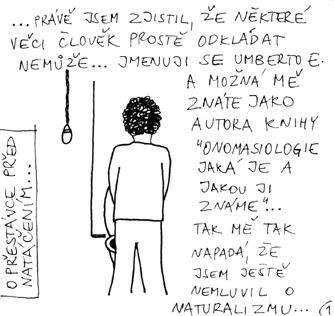 ...PRÁVĚ JSEM ZJISTIL, ŽE NĚKTERÉ
VĚCI ČLOVĚK PROSTĚ ODKLÁDAT
NEMŮŽE... JMENUJI SE UMBERTO E.
A MOŽNÁ MĚ
ZNÁTE JAKO
AUTORA KNIHY
"ONOMASIOLOGIE
JAKÁ JE A
JAKOU JI
ZNÁME"...
TAK MĚ TAK
NAPADÁ, ŽE
JSEM JEŠTĚ
NEMLUVIL O
NATURALIZMU... (1
O PŘESTÁVCE PŘED
NATÁČENÍM...